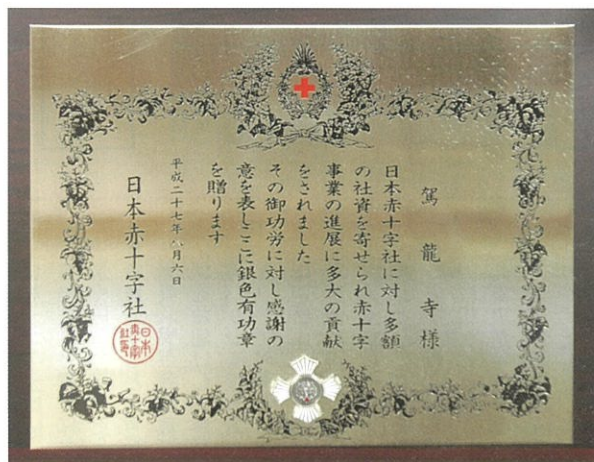 駕龍寺様
日本赤十字社に対し多額
の社資を寄せられ赤十字
事業の進展に多大の貢献
をされました
その御功労に対し感謝の
意を表しここに銀色有功章
を贈ります
平成二十七年 月六日
日本赤十字社